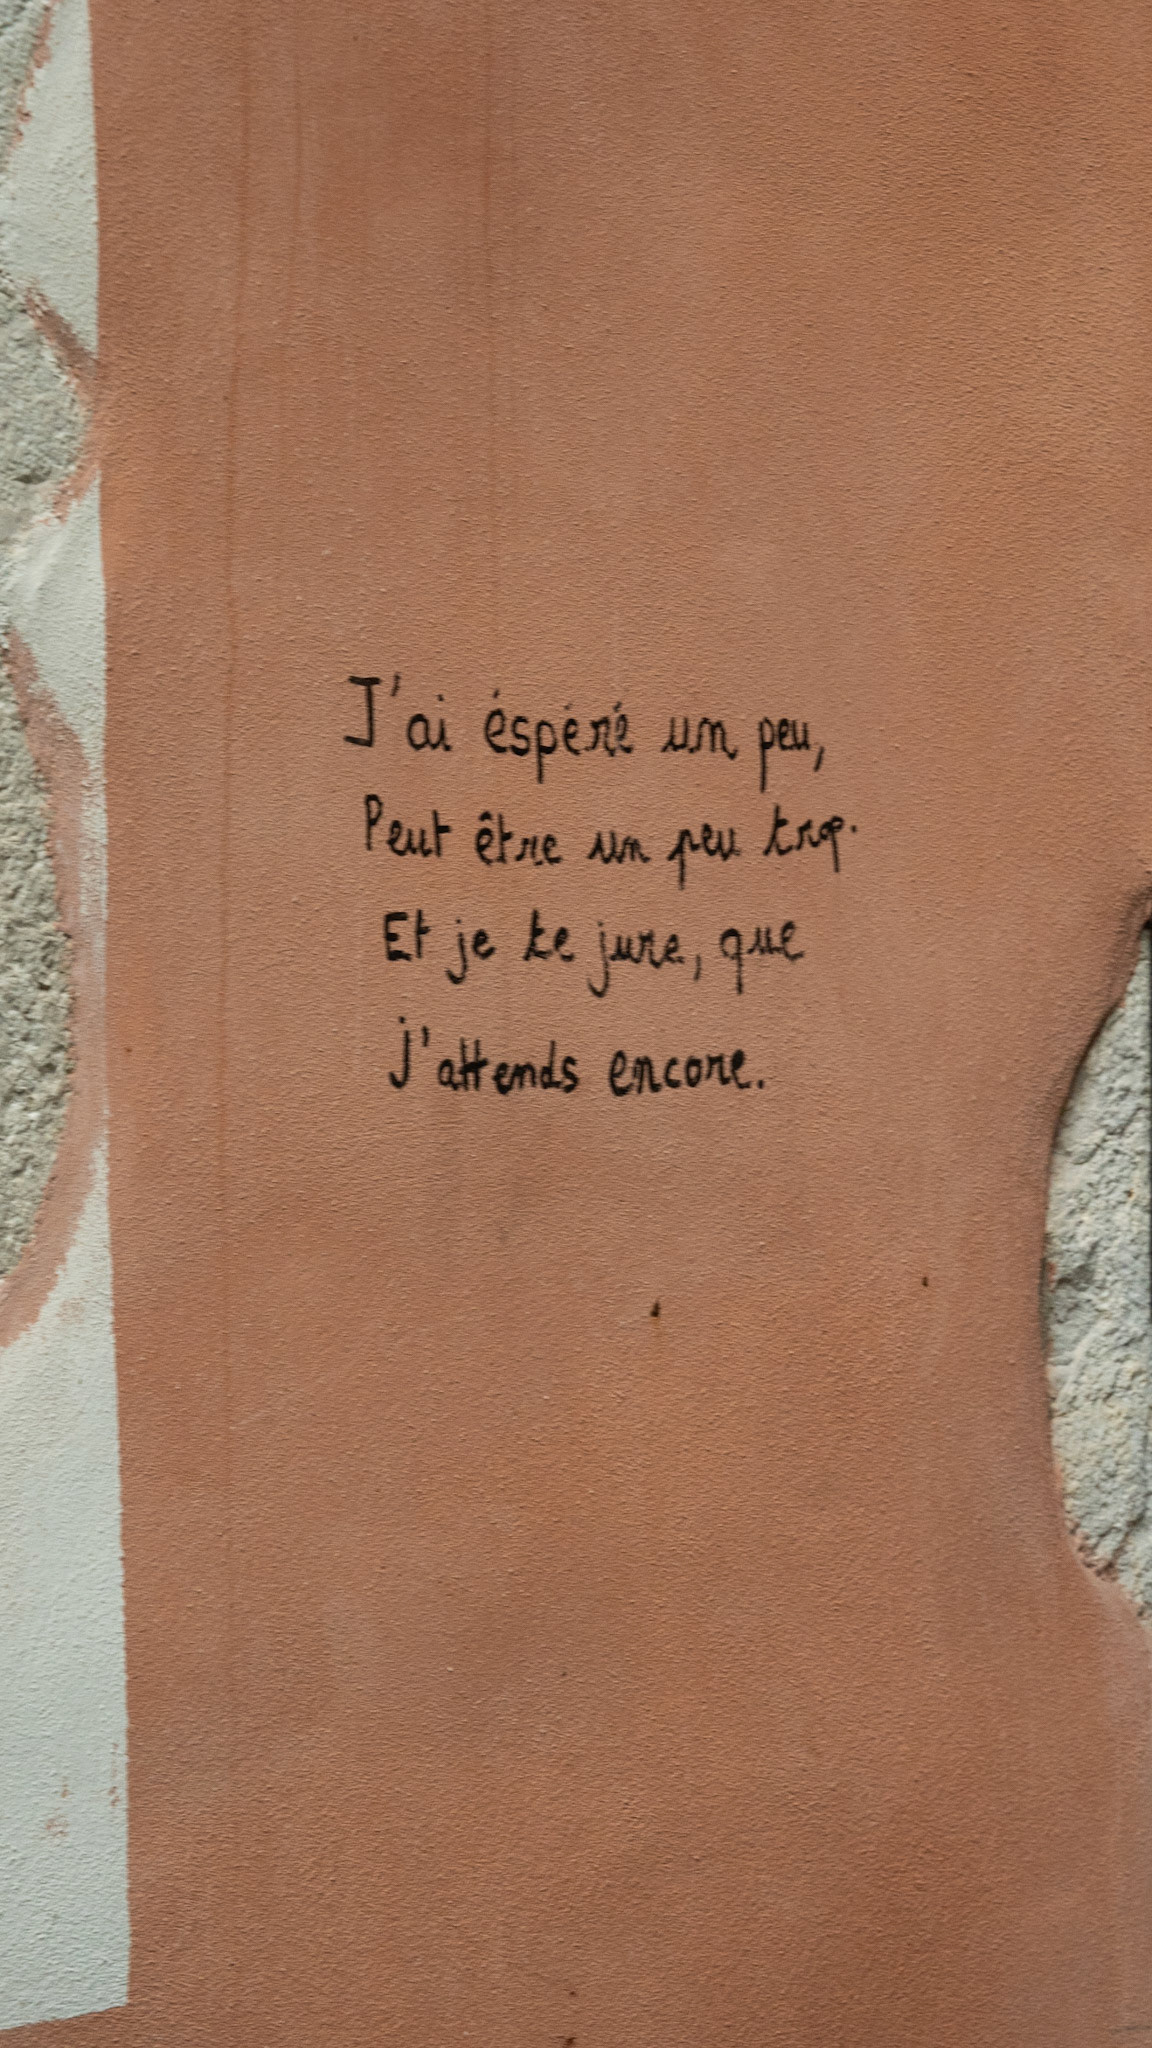 J'ai éspéré un peu,
Peut être un peu trop.
Et je te jure, que
j'attends encore.